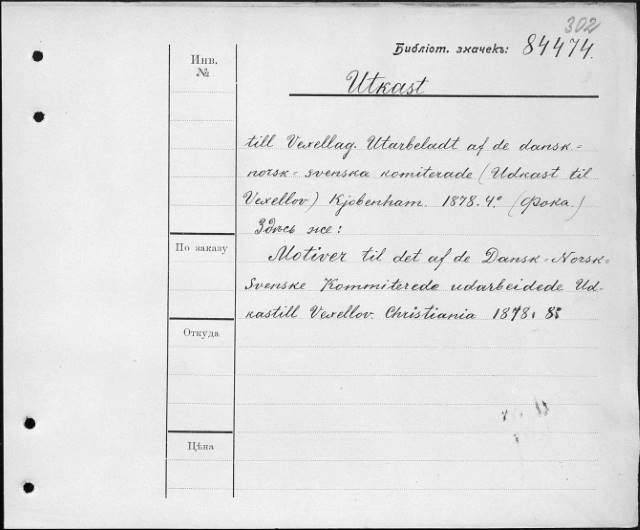 302
Библіот. значекъ: 84474.
Инв.
№
Utkast
till Vexellag. Utarbeladt af de dansk=
norsk=svenska komiterade (Udkast til
Vexellov) Kjobenham. 1878. 4° (Фока.)
Здѣсь же:
По заказу
Motiver til det af de Dansk=Norsk=
Svenske Kommiterede udarbeidede Ud-
kastill Vexellov. Christiania 1878. 8°
Откуда
Цѣна